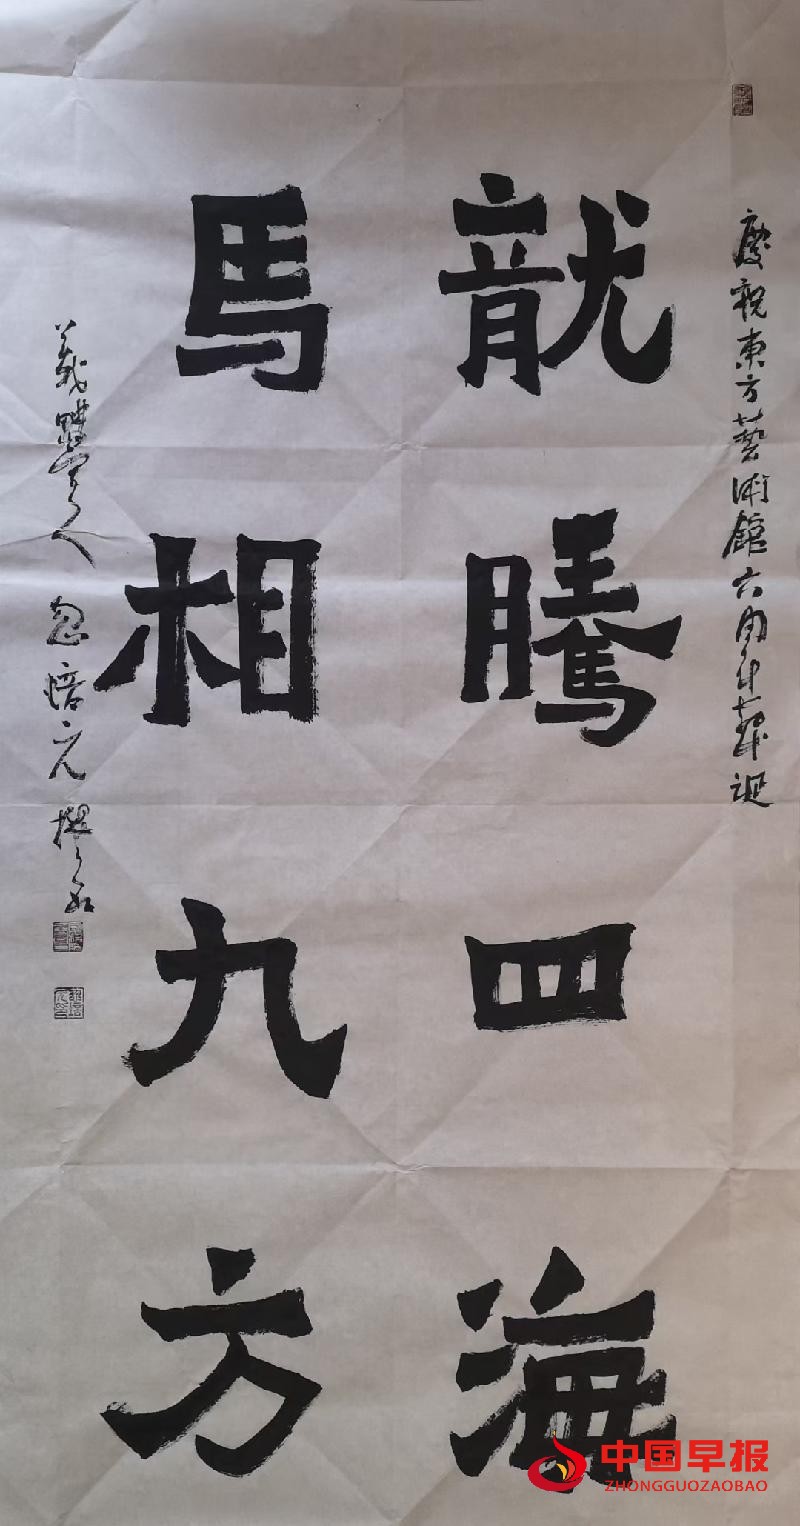 慶祝東方藝術館六周年華誕
龍騰四海
馬相九方
忽培元
中国早报
ZHONGGUOZAOBAO